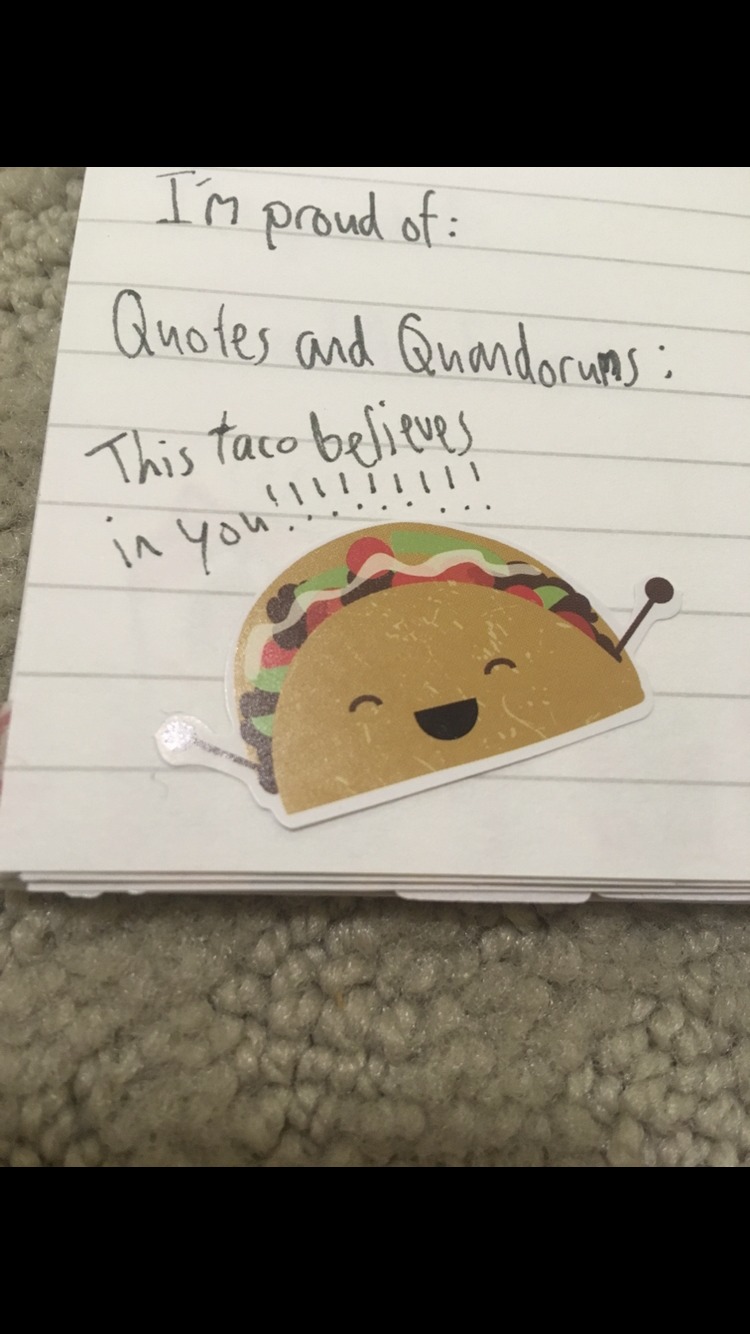 I'm proud of:
Quotes and Quandorums:
This taco believes
in you!!!!!!!!!!